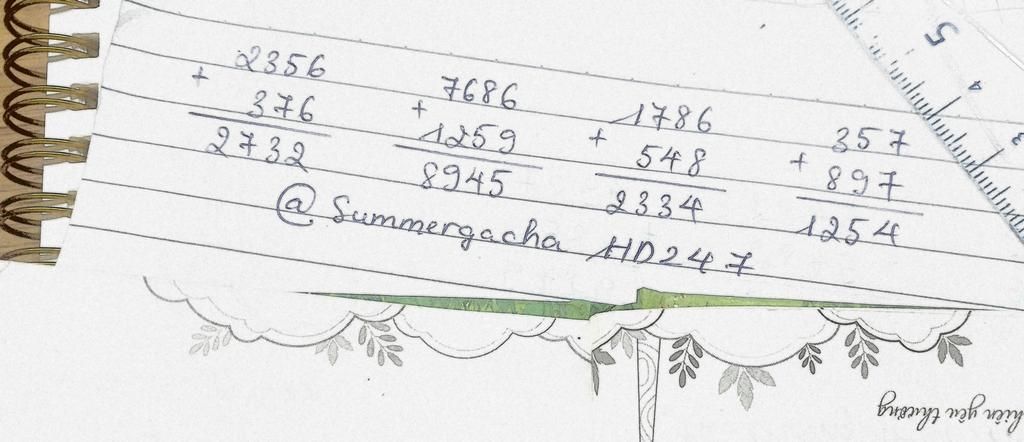 2356
+
376
2732
7686
+
1259
8945
1786
+
548
2334
357
+
897
1254
@ Summergacha HD247
5
4
3
hiên yêu thương